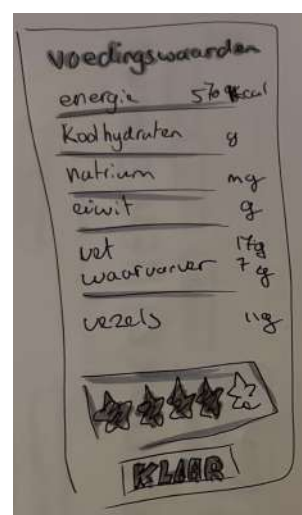 voedingswaarden
energie 570 kcal
Koolhydraten g
natrium mg
eiwit g
vet 17g
waarvan ver 7 g
vezels 11g
KLAAR